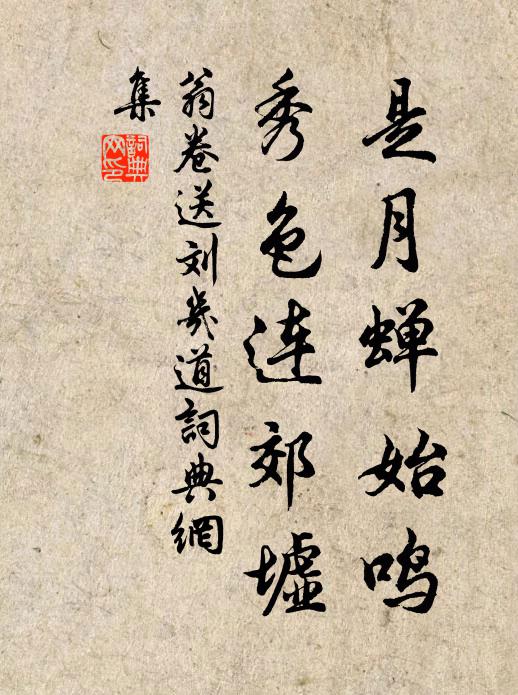 是月蝉始鸣
秀色连郊墟
翁卷送刘几道詞典網
集
詞典
网印